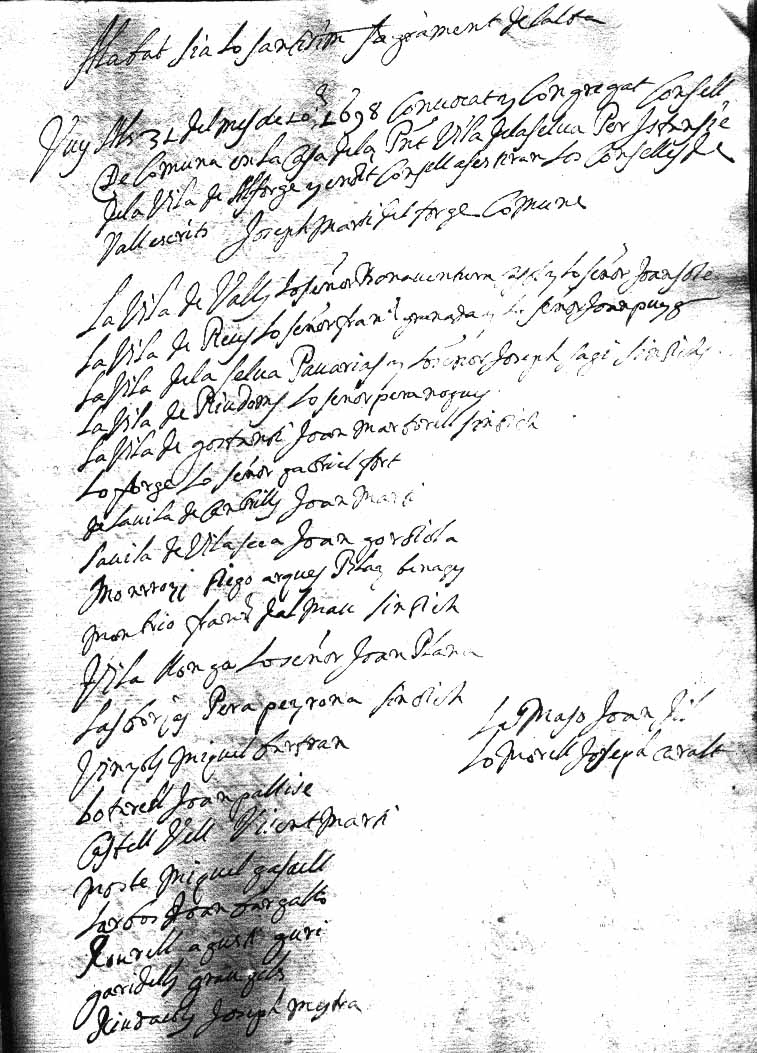 Alabat sia lo santisim Sagrament del altar
Vuy als 31 del mes de 10.e 1698 Convocat y Congregat Consell
De Comuna en la Casa dela Pnt Vila dela selva Per
dela Vila de Alforge y en dit Consell asestiran los Consellers de
Vall escrits Joseph Marti del forge Comune
La Vila de Valls Lo señor Bonaventura y lo señor Joan sole
La Vila de Reus Lo señor fran.c granada y lo señor Joan puyg
La Vila dela selva Pau arias y Lo señor Joseph sagi sindichs
La Vila de Riudoms Lo señor pera nogues
La Vila de gostanti Joan Martorell sindich
Lo forge Lo señor gabriel fort
de la vila de Cambrills Joan Marti
La vila de Vilaseca Joan gordiola
Monrroig benages
Monbrio fran.c dal Mau sindich
Vila llonga Lo señor Joan Plana
Las borjas Pera peyrona sindich
Vinyols Miquel bertran
botarell Joan pallise
Castell Vell Vicent Marti
Moste Miquel gasull
Larbos Joan bargallo
Rourell agusti guri
garidells granyels
Riudacols Joseph Mestra
La Maso Joan Gil
Lo Morell Joseph Caralt